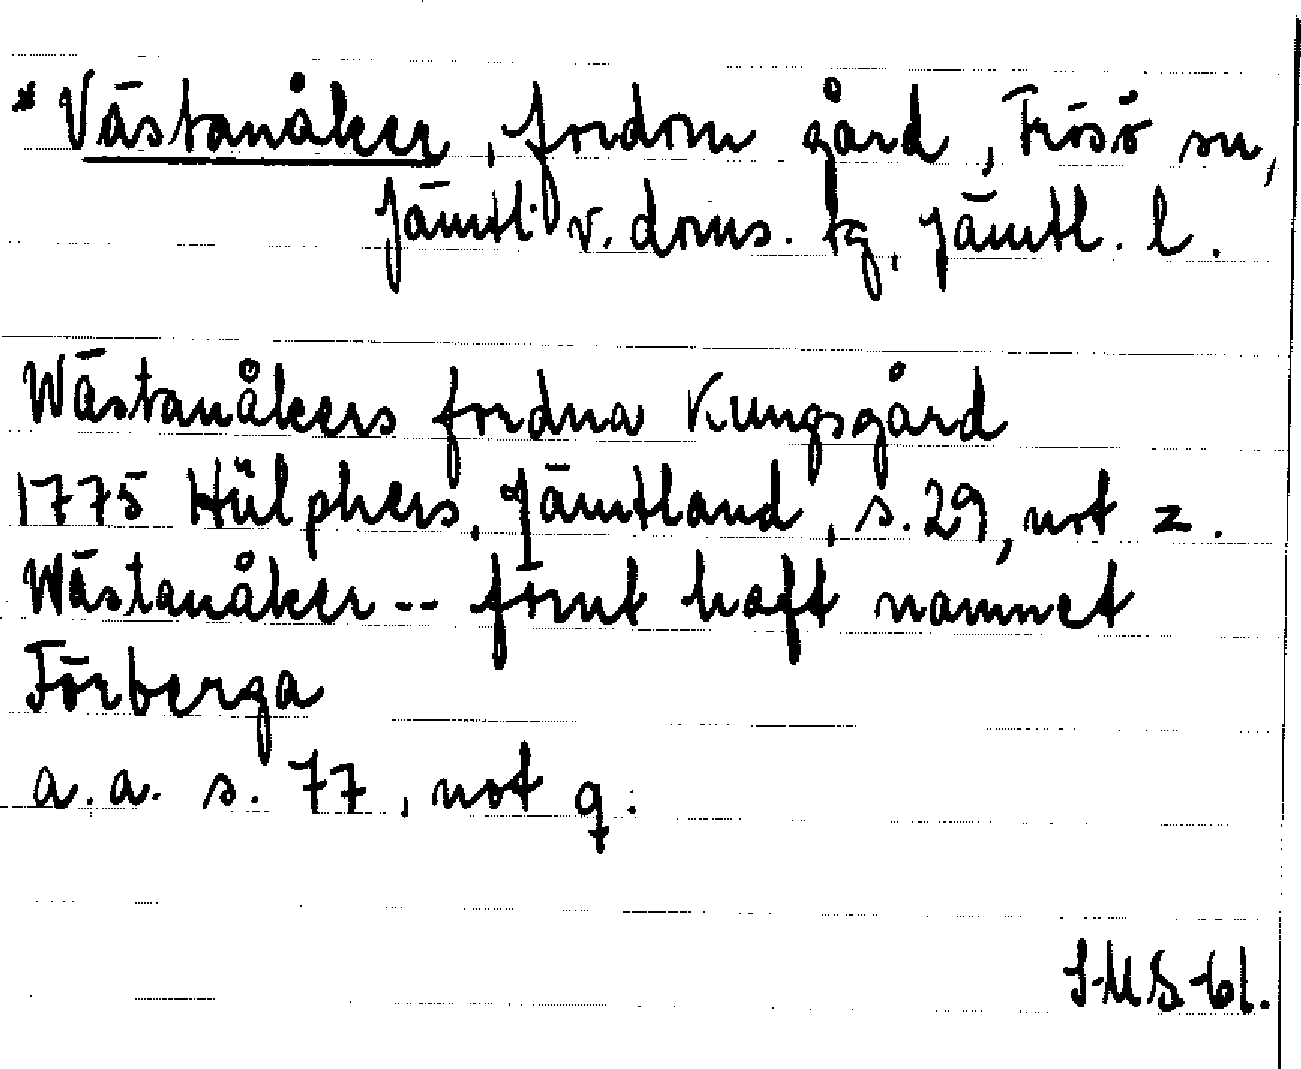 * Västanåker, fordom gård, Frösö sn,
Jämtl. v. doms. tg, Jämtl. l.
Wästanåkers fordna Kungsgård
1775 Hülphers, Jämtland, s. 29, not z.
Wästanåker -- förut haft namnet
Förberga
a. a. s. 77, not q.
SMS-61.